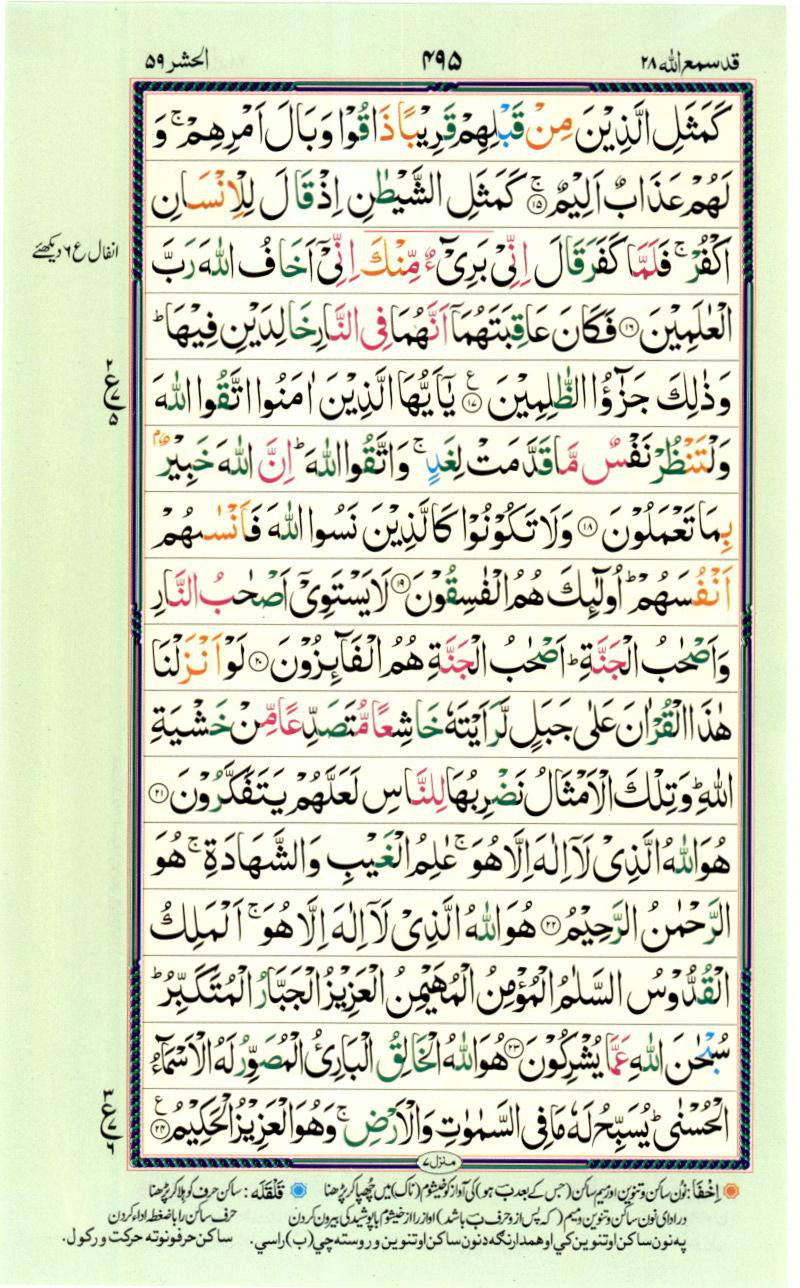 قد سمع الله ٢٨
۴۹۵
الحشر ۵۹
كَمَثَلِ الَّذِيْنَ مِنْ قَبْلِهِمْ قَرِيْبًا ذَاقُوْا وَبَالَ اَمْرِهِمْ ۚ وَ
لَهُمْ عَذَابٌ اَلِيْمٌ ۚ ﴿١٥﴾ كَمَثَلِ الشَّيْطٰنِ اِذْ قَالَ لِلْاِنْسَانِ
اكْفُرْ ۚ فَلَمَّا كَفَرَ قَالَ اِنِّىْ بَرِىْٓءٌ مِّنْكَ اِنِّىْٓ اَخَافُ اللهَ رَبَّ
انفال ع ٦ دیکھئے
الْعٰلَمِيْنَ ﴿١٦﴾ فَكَانَ عَاقِبَتَهُمَآ اَنَّهُمَا فِى النَّارِ خَالِدَيْنِ فِيْهَا ؕ
وَذٰلِكَ جَزٰٓؤُا الظّٰلِمِيْنَ ﴿١٧﴾ ع يٰٓاَيُّهَا الَّذِيْنَ اٰمَنُوا اتَّقُوا اللهَ
٢ ع ٧ ۵
وَلْتَنْظُرْ نَفْسٌ مَّا قَدَّمَتْ لِغَدٍ ۚ وَاتَّقُوا اللهَ ؕ اِنَّ اللهَ خَبِيْرٌۢ
بِمَا تَعْمَلُوْنَ ﴿١٨﴾ وَلَا تَكُوْنُوْا كَالَّذِيْنَ نَسُوا اللهَ فَاَنْسٰىهُمْ
اَنْفُسَهُمْ ؕ اُولٰٓئِكَ هُمُ الْفٰسِقُوْنَ ﴿١٩﴾ لَا يَسْتَوِىْٓ اَصْحٰبُ النَّارِ
وَاَصْحٰبُ الْجَنَّةِ ؕ اَصْحٰبُ الْجَنَّةِ هُمُ الْفَآئِزُوْنَ ﴿٢٠﴾ لَوْ اَنْزَلْنَا
هٰذَا الْقُرْاٰنَ عَلٰى جَبَلٍ لَّرَاَيْتَهٗ خَاشِعًا مُّتَصَدِّعًا مِّنْ خَشْيَةِ
اللهِ ؕ وَتِلْكَ الْاَمْثَالُ نَضْرِبُهَا لِلنَّاسِ لَعَلَّهُمْ يَتَفَكَّرُوْنَ ﴿٢١﴾
هُوَ اللهُ الَّذِىْ لَآ اِلٰهَ اِلَّا هُوَ ۚ عٰلِمُ الْغَيْبِ وَالشَّهَادَةِ ۚ هُوَ
الرَّحْمٰنُ الرَّحِيْمُ ﴿٢٢﴾ هُوَ اللهُ الَّذِىْ لَآ اِلٰهَ اِلَّا هُوَ ۚ اَلْمَلِكُ
الْقُدُّوْسُ السَّلٰمُ الْمُؤْمِنُ الْمُهَيْمِنُ الْعَزِيْزُ الْجَبَّارُ الْمُتَكَبِّرُ ؕ
سُبْحٰنَ اللهِ عَمَّا يُشْرِكُوْنَ ﴿٢٣﴾ هُوَ اللهُ الْخَالِقُ الْبَارِئُ الْمُصَوِّرُ لَهُ الْاَسْمَآءُ
الْحُسْنٰى ؕ يُسَبِّحُ لَهٗ مَا فِى السَّمٰوٰتِ وَالْاَرْضِ ۚ وَهُوَ الْعَزِيْزُ الْحَكِيْمُ ﴿٢٤﴾ ع
٣ ع ٧ ٦
منزل ٧
اِخْفَا: نون ساکن وتنوین اورمیم ساکن (جس کے بعد بَ ہو) کی آواز کو خیشوم (ناک) میں چھپا کر پڑھنا قَلْقَلَه: ساکن حرف کو ہلا کر پڑھنا
در ادای نون ساکن وتنوین ومیم (که پس از و حرف ب باشد) آواز را از خیشوم با پوشیدگی بیرون کردن حرف ساکن را با ضغطه اداء کردن
په نون ساکن او تنوین کي او همدارنګه د نون ساکن او تنوین وروسته چي (ب) راسي. ساکن حرفونو ته حرکت ورکول.